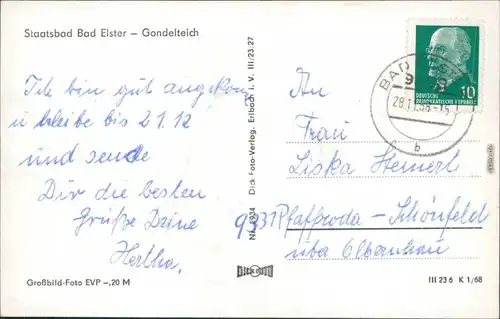 Staatsbad Bad Elster – Gondelteich
Ich bin gut angekom
u bleibe bis 21.12
und sende
Dir die besten
Grüße Deine
Hertha.
Großbild-Foto EVP –,20 M
Dick Foto-Verlag, Erlbach i. V. III:23:27
DICK FOTO
DEUTSCHE
DEMOKRATISCHE REPUBLIK
10
BAD
9
28.11.68-15
b
An
Frau
Liska Heinerl
9331 Pfaffroda – Schönfeld
über Olbernhau
III 23 6 K 1/68